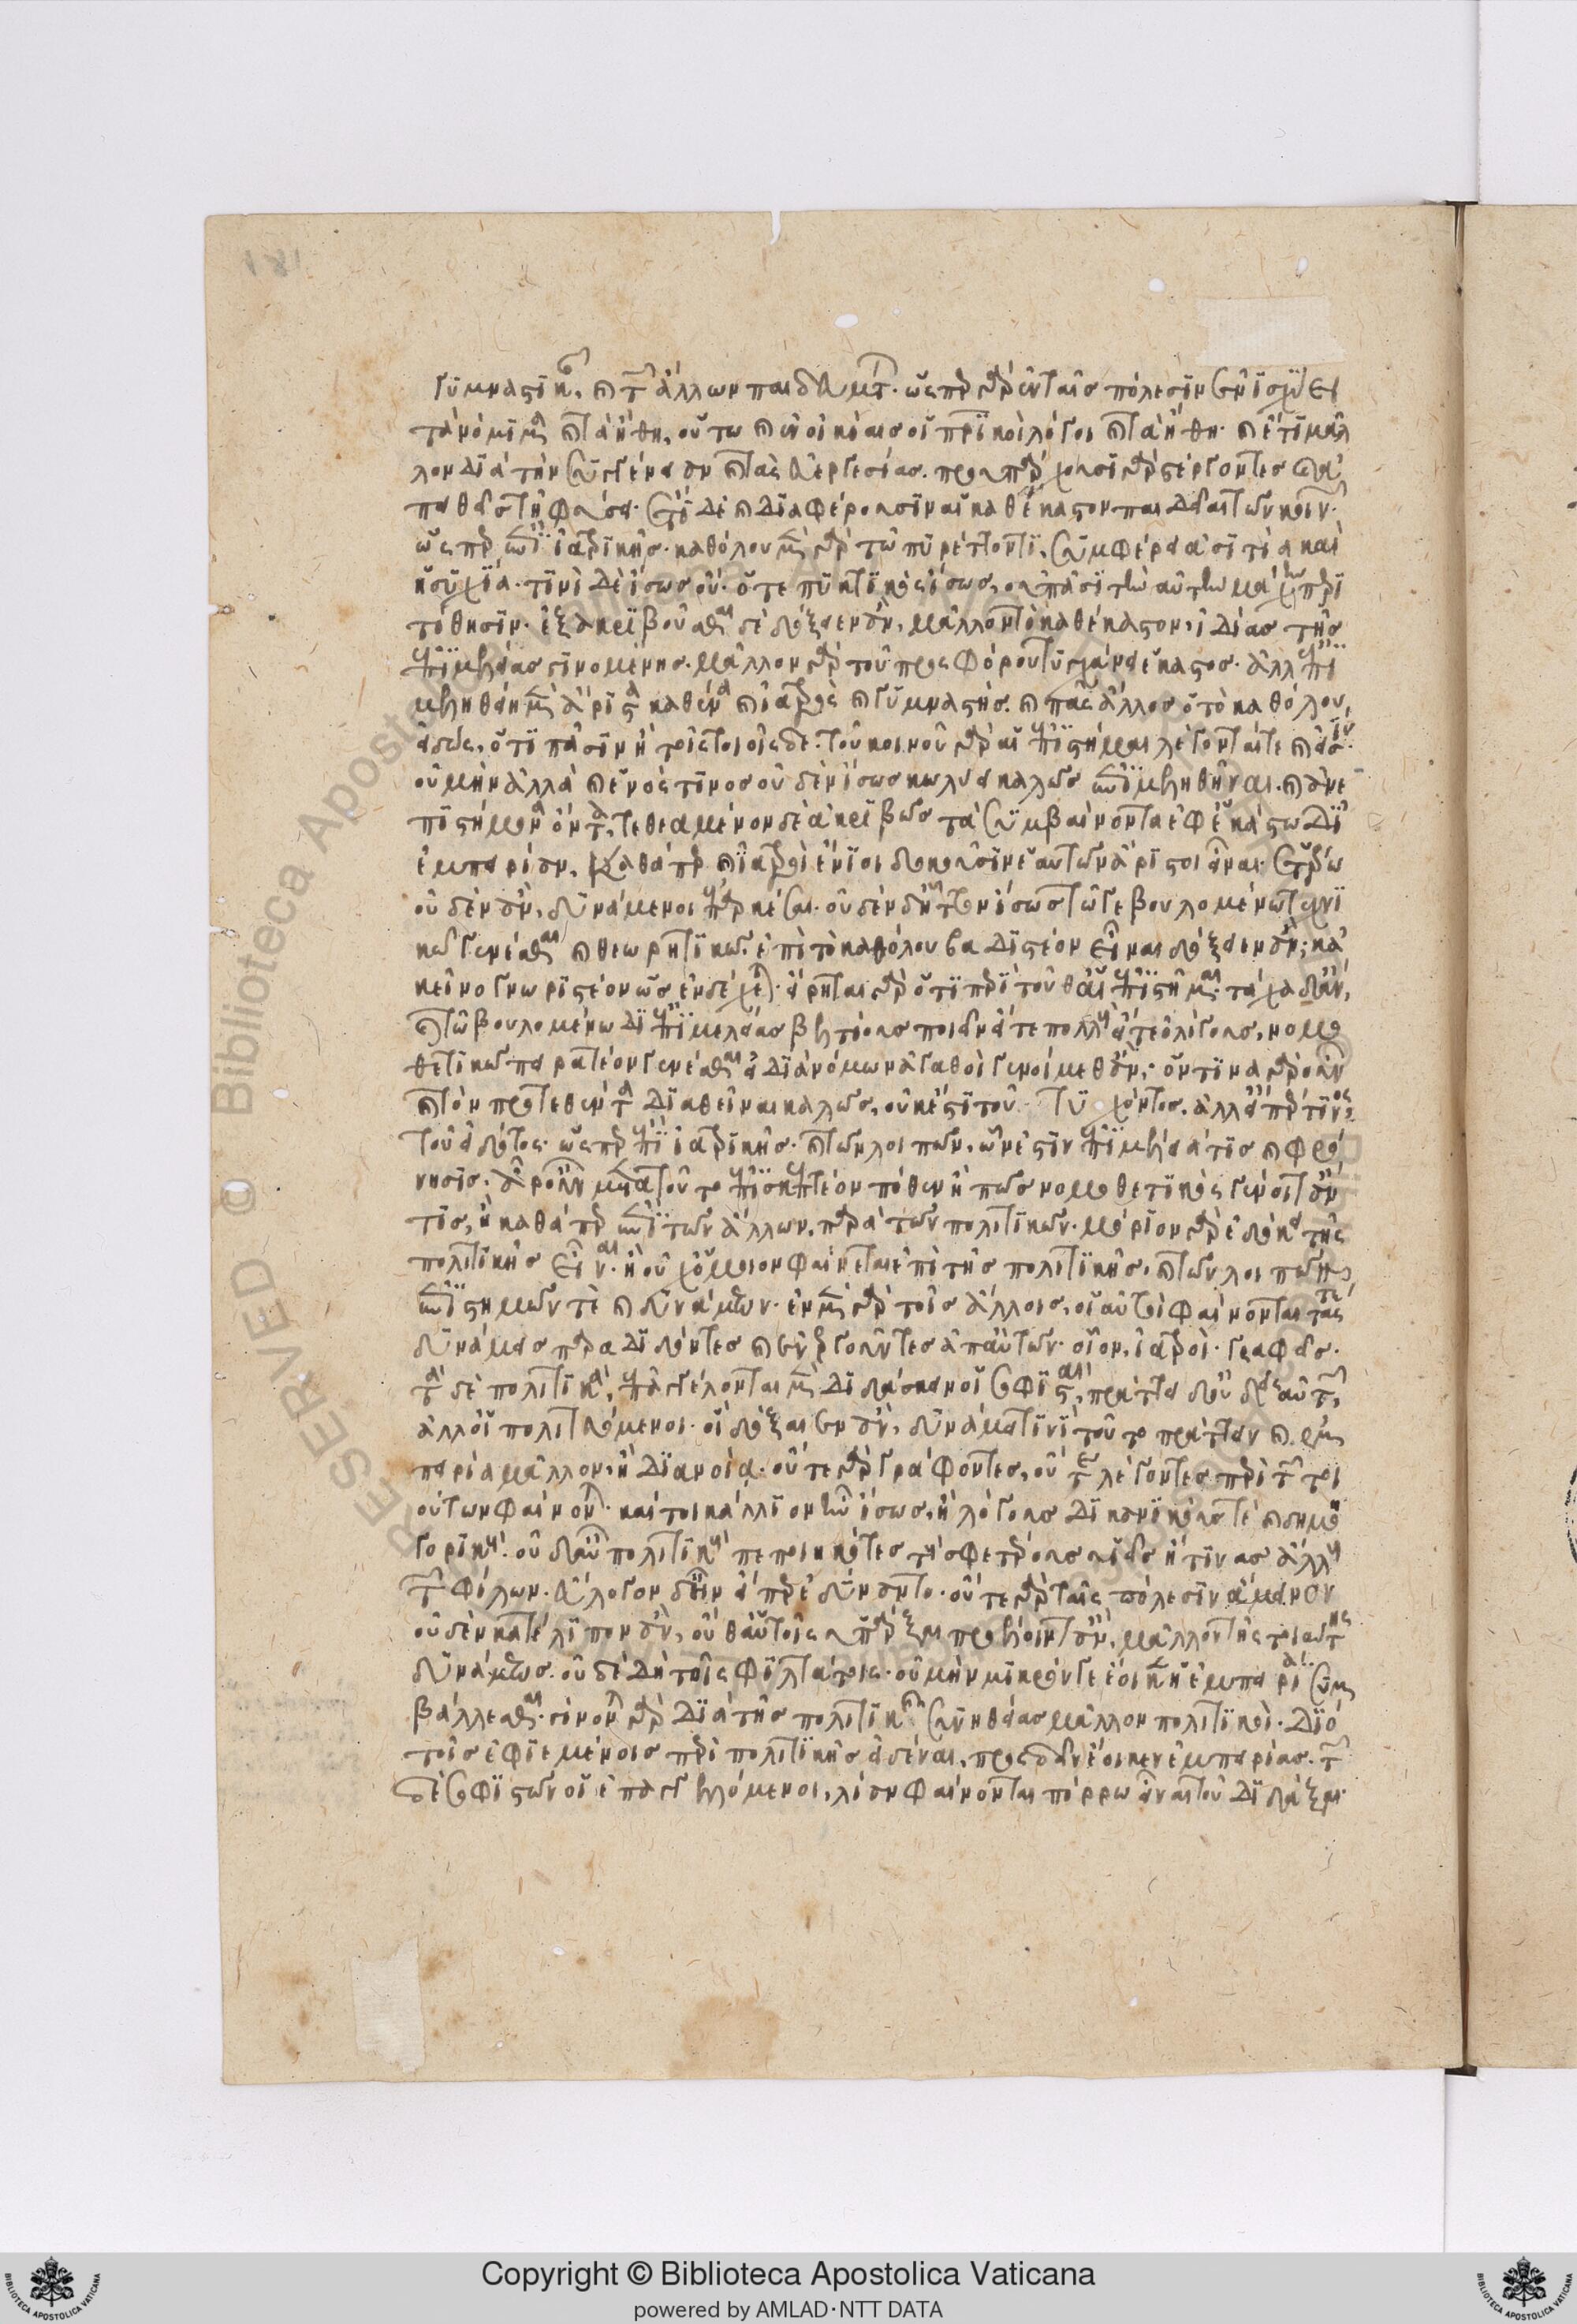 γυμναστικῶν, καὶ τῶν ἄλλων παιδευμάτων. ὥσπερ γὰρ ἐν ταῖς πόλεσιν ἐνισχύει
τὰ νόμιμα καὶ τὰ ἤθη, οὕτω καὶ ἐν οἰκίαις οἱ πατρικοὶ λόγοι καὶ τὰ ἤθη. καὶ ἔτι μᾶλ
λον διὰ τὴν συγγένειαν καὶ τὰς εὐεργεσίας. προϋπάρχουσι γὰρ στέργοντες καὶ εὐ
πειθεῖς τῇ φύσει. ἔτι δὲ καὶ διαφέρουσιν αἱ καθέκαστον παιδεῖαι τῶν κοινῶν.
ὥσπερ ἐπὶ ἰατρικῆς. καθόλου μὲν γὰρ τῷ πυρέττοντι, συμφέρει ἀσιτία καὶ
ἡσυχία. τινὶ δὲ ἴσως οὔ. ὅ τε πυκτικὸς ἴσως, οὐ πᾶσι τὴν αὐτὴν μάχην περι
τίθησιν. ἐξακριβοῦσθαι δὲ δόξειεν ἂν, μᾶλλον τὸ καθέκαστον, ἰδίας τῆς
ἐπιμελείας γινομένης. μᾶλλον γὰρ τοῦ προσφόρου τυγχάνει ἕκαστος. ἀλλ' ἐπι
μεληθείη μὲν ἄριστα καθένα καὶ ἰατρὸς καὶ γυμναστὴς. καὶ πᾶς ἄλλος ὁ τὸ καθόλου,
εἰδὼς, ὅτι πᾶσιν ἢ τοῖς τοιοῖσδε. τοῦ κοινοῦ γὰρ αἱ ἐπιστῆμαι λέγονταί τε καὶ εἰσίν.
οὐ μὴν ἀλλὰ καὶ ἑνός τινος οὐδὲν ἴσως κωλύει καλῶς ἐπιμεληθῆναι. καὶ ἀνε
πιστήμονα ὄντα, τεθεαμένον δὲ ἀκριβῶς τὰ συμβαίνοντα ἐφ' ἑκάστῳ δι'
ἐμπειρίαν, καθάπερ καὶ ἰατροὶ ἔνιοι δοκοῦσιν ἑαυτῶν ἄριστοι εἶναι. ἑτέρῳ
οὐδὲν ἂν, δυνάμενοι ἐπαρκέσαι. οὐδὲν δ' ἧττον ἴσως τῷ γε βουλομένῳ τεχνι
κῷ γενέσθαι καὶ θεωρητικῷ. ἐπὶ τὸ καθόλου βαδιστέον εἶναι δόξειεν ἂν; κἀ
κεῖνο γνωριστέον ὡς ἐνδέχεται. εἴρηται γὰρ ὅτι περὶ τοῦθ' αἱ ἐπιστῆμαι. τάχα δ' ἂν,
καὶ τῷ βουλομένῳ δι' ἐπιμελείας βελτίους ποιεῖν εἴτε πολλοὺς εἴτε ὀλίγους, νομο
θετικῷ πειρατέον γενέσθαι εἰ διὰ νόμων ἀγαθοὶ γενοίμεθ' ἄν. ὅντινα γὰρ οὖν
καὶ τὸν προτεθέντα διαθεῖναι καλῶς, οὐκ ἔστι τοῦ τυχόντος. ἀλλ' εἴπερ τινός,
τοῦ εἰδότος. ὥσπερ ἐπὶ ἰατρικῆς. καὶ τῶν λοιπῶν, ὧν ἐστιν ἐπιμέλειά τις καὶ φρό
νησις. ἆρ' οὖν μετὰ τοῦτο ἐπισκεπτέον πόθεν ἢ πῶς νομοθετικὸς γένοιτ' ἄν
τις, ἢ καθάπερ ἐπὶ τῶν ἄλλων, παρὰ τῶν πολιτικῶν. μόριον γὰρ ἐδόκει τῆς
πολιτικῆς εἶναι. ἢ οὐχ ὅμοιον φαίνεται ἐπὶ τῆς πολιτικῆς, καὶ τῶν λοιπῶν
ἐπιστημῶν τὲ καὶ δυνάμεων. ἐν μὲν γὰρ τοῖς ἄλλοις, οἱ αὐτοὶ φαίνονται τάς τε
δυνάμεις παραδιδόντες καὶ ἐνεργοῦντες ἀπ' αὐτῶν. οἷον, ἰατροὶ. γραφεῖς.
τὰ δὲ πολιτικὰ, ἐπαγγέλονται μὲν διδάσκειν οἱ σοφισταί, πράττει δ' οὐδεὶς αὐτῶν,
ἀλλ' οἱ πολιτευόμενοι. οἳ δόξαιεν ἂν, δυνάμει τινὶ τοῦτο πράττειν καὶ ἐμ
πειρίᾳ μᾶλλον, ἢ διανοίᾳ. οὔτε γὰρ γράφοντες, οὔτε λέγοντες περὶ τῶν τοι
ούτων φαίνονται. καίτοι κάλλιον ἦν ἴσως, ἢ λόγους δικανικούς τὲ καὶ δημη
γορικούς. οὐδ' αὖ πολιτικοὺς πεποιηκότες τοὺς σφετέρους υἱεῖς ἤ τινας ἄλλους
τῶν φίλων. εὔλογον δ' ἦν εἴπερ ἐδύναντο. οὔτε γὰρ ταῖς πόλεσιν ἄμεινον
οὐδὲν κατέλιπον ἂν, οὔθ' αὑτοῖς ὑπάρξαι προέλοιντ' ἂν, μᾶλλον τῆς τοιαύτης
δυνάμεως. οὐδὲ δὴ τοῖς φιλτάτοις. οὐ μὴν μικρόν γε ἔοικεν ἡ ἐμπειρία συμ
βάλλεσθαι. γίνονται γὰρ διὰ τῆς πολιτικῆς συνηθείας μᾶλλον πολιτικοὶ. διὸ
τοῖς ἐφιεμένοις περὶ πολιτικῆς εἰδέναι, προσδεῖν ἔοικεν ἐμπειρίας. τῶν
δὲ σοφιστῶν οἱ ἐπαγγελλόμενοι, λίαν φαίνονται πόρρω εἶναι τοῦ διδάξαι.